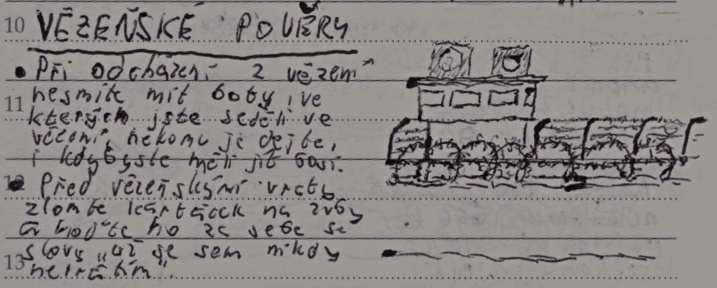 10 VĚZEŇSKÉ POVĚRY
• Při odcházení z vězení
nesmíte mít boty, ve
11 kterých jste seděli ve
vězení, někomu je dejte,
i kdybyste měli jít bosi.
• Před vězeňskými vraty
zlomte kartáček na zuby
a hoďte ho za sebe se
slovy „už se sem nikdy
13 nevrátím".